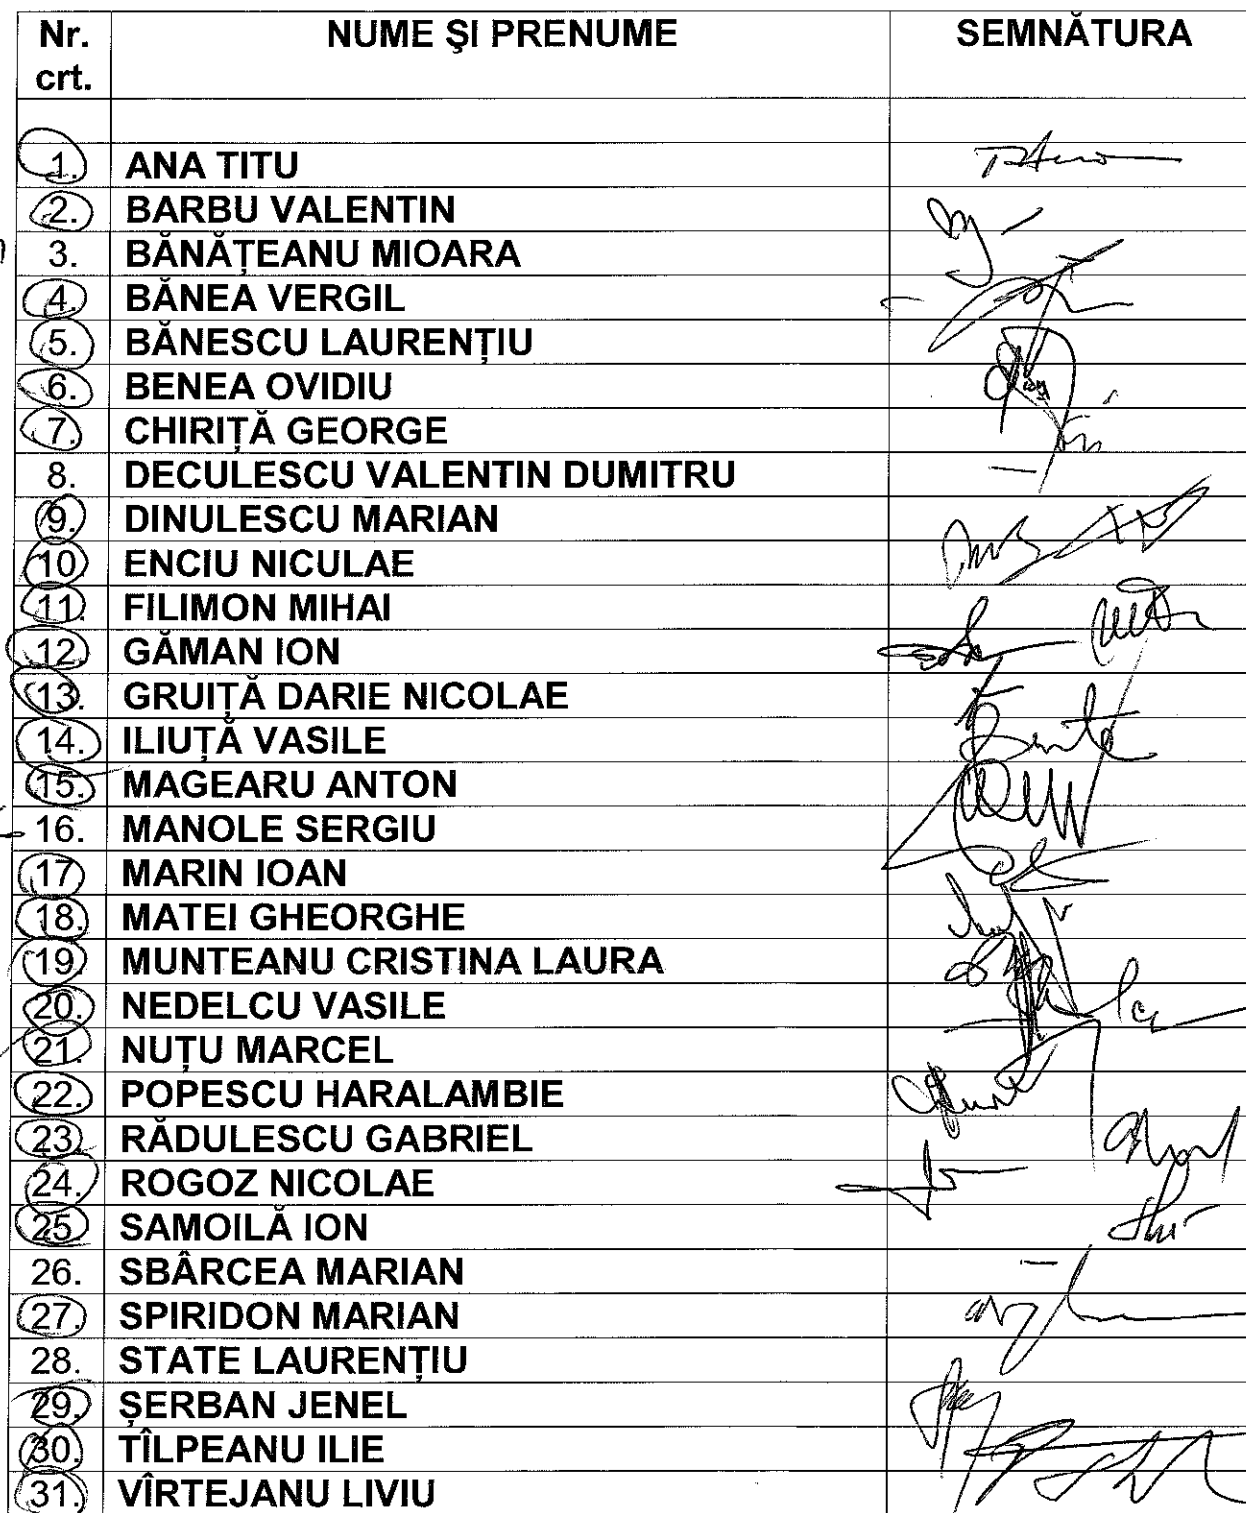 Nr. crt. NUME ŞI PRENUME SEMNĂTURA
1. ANA TITU
2. BARBU VALENTIN
3. BĂNĂŢEANU MIOARA
4. BĂNEA VERGIL
5. BĂNESCU LAURENŢIU
6. BENEA OVIDIU
7. CHIRIŢĂ GEORGE
8. DECULESCU VALENTIN DUMITRU
9. DINULESCU MARIAN
10 ENCIU NICULAE
11. FILIMON MIHAI
12. GĂMAN ION
13. GRUIŢĂ DARIE NICOLAE
14. ILIUŢĂ VASILE
15. MAGEARU ANTON
16. MANOLE SERGIU
17 MARIN IOAN
18. MATEI GHEORGHE
19. MUNTEANU CRISTINA LAURA
20. NEDELCU VASILE
21. NUŢU MARCEL
22. POPESCU HARALAMBIE
23. RĂDULESCU GABRIEL
24. ROGOZ NICOLAE
25. SAMOILĂ ION
26. SBÂRCEA MARIAN
27. SPIRIDON MARIAN
28. STATE LAURENŢIU
29. ŞERBAN JENEL
30. TÎLPEANU ILIE
31. VÎRTEJANU LIVIU